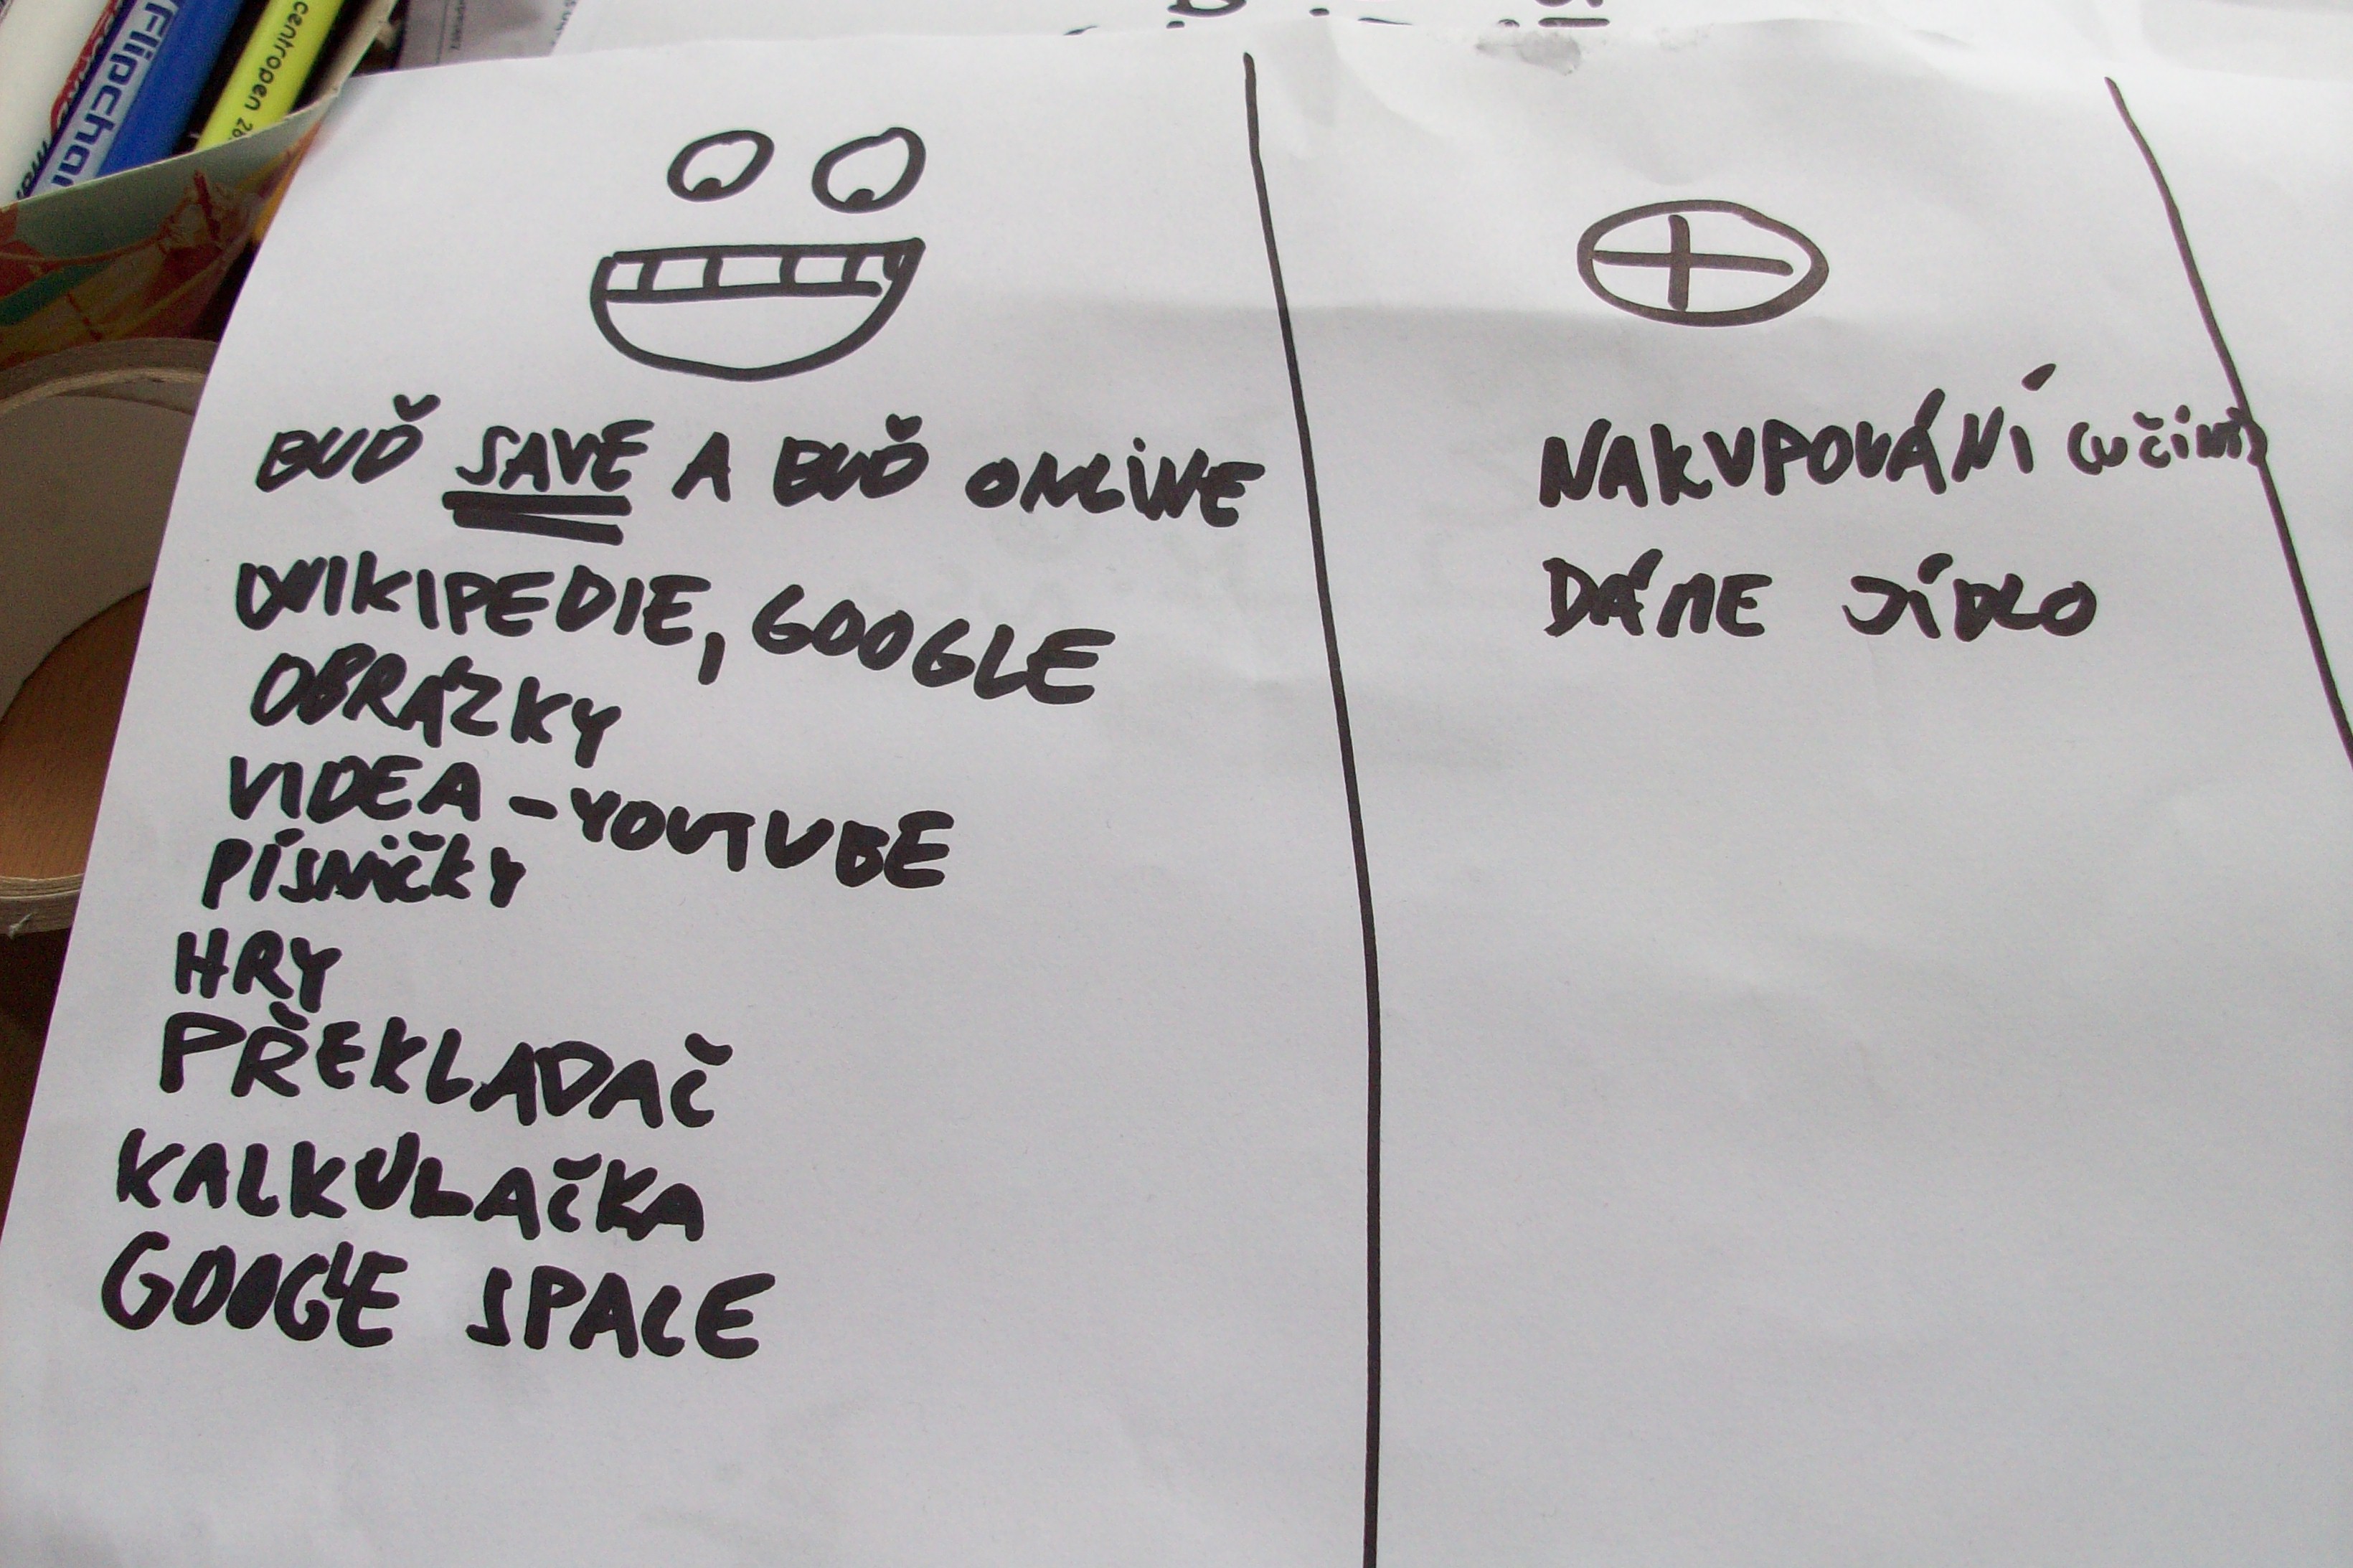 Flipchar
centropen 28
BUĎ SAVE A BUĎ ONLINE
WIKIPEDIE, GOOGLE
OBRÁZKY
VIDEA - YOUTUBE
PÍSNIČKY
HRY
PŘEKLADAČ
KALKULAČKA
GOOGLE SPACE
NAKUPOVÁNÍ
DÁME JÍDLO